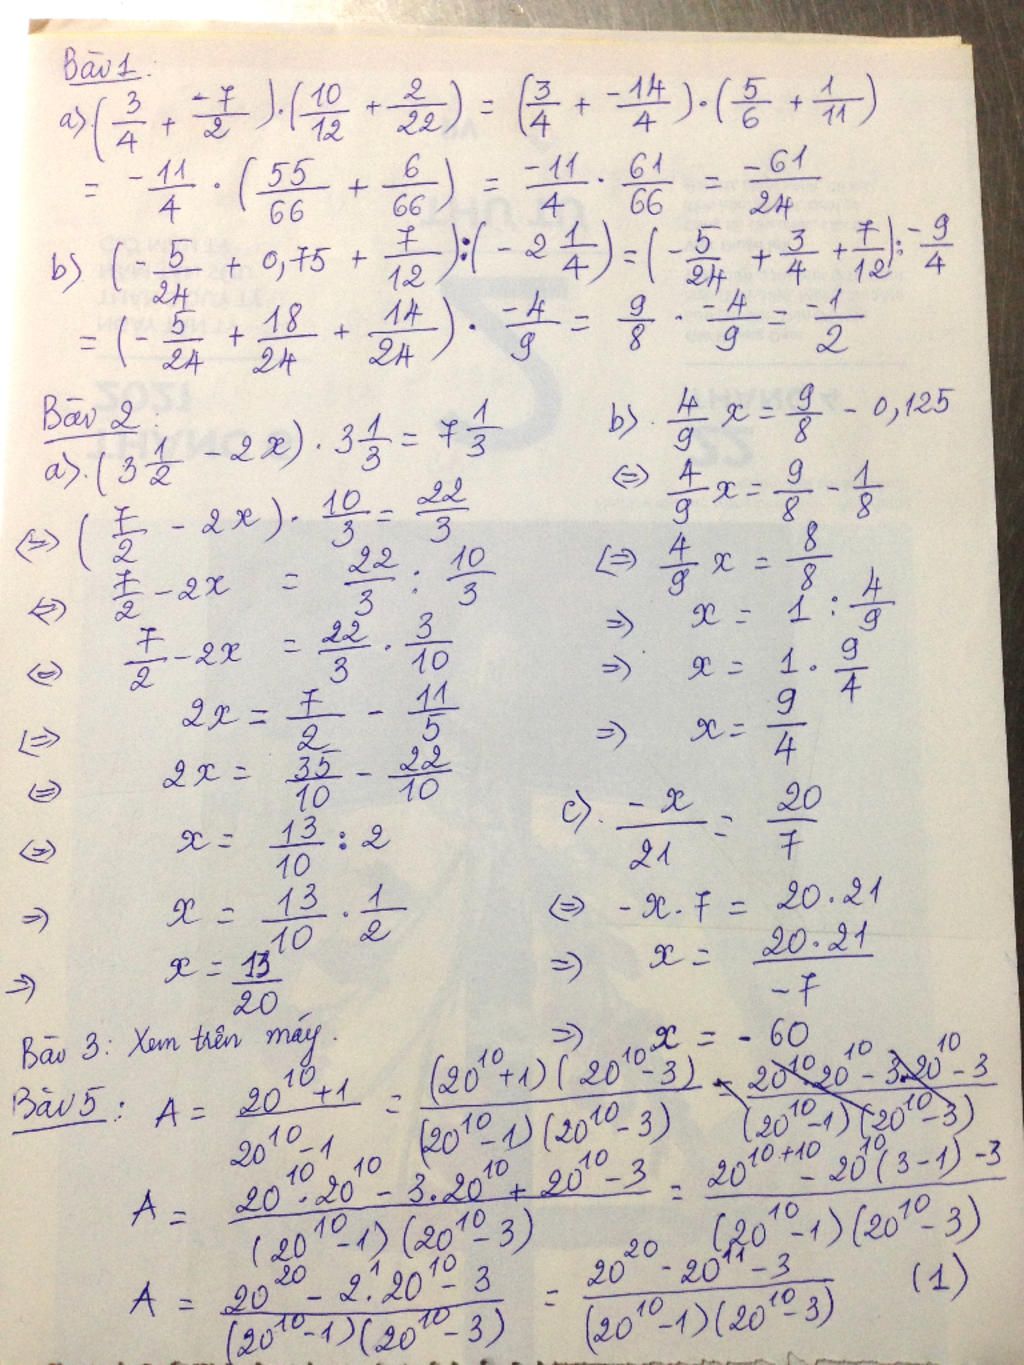 Bài 1:
a). (3/4 + -7/2) . (10/12 + 2/22) = (3/4 + -14/4) . (5/6 + 1/11)
= -11/4 . (55/66 + 6/66) = -11/4 . 61/66 = -61/24
b). (-5/24 + 0,75 + 7/12) : (-2 1/4) = (-5/24 + 3/4 + 7/12) : -9/4
= (-5/24 + 18/24 + 14/24) . -4/9 = 9/8 . -4/9 = -1/2
Bài 2:
a). (3 1/2 - 2x) . 3 1/3 = 7 1/3
<=> (7/2 - 2x) . 10/3 = 22/3
<=> 7/2 - 2x = 22/3 : 10/3
<=> 7/2 - 2x = 22/3 . 3/10
<=> 2x = 7/2 - 11/5
<=> 2x = 35/10 - 22/10
<=> x = 13/10 : 2
=> x = 13/10 . 1/2
=> x = 13/20
b). 4/9 x = 9/8 - 0,125
<=> 4/9 x = 9/8 - 1/8
<=> 4/9 x = 8/8
=> x = 1 : 4/9
=> x = 1 . 9/4
=> x = 9/4
c). -x/21 = 20/7
<=> -x . 7 = 20 . 21
=> x = 20 . 21/-7
=> x = -60
Bài 3: Xem trên máy.
Bài 5: A = 20^10 + 1/20^10 - 1 = (20^10 + 1)(20^10 - 3)/(20^10 - 1)(20^10 - 3) = 20^10 . 20^10 - 3 . 20^10 - 3/(20^10 - 1)(20^10 - 3)
A = 20^10 . 20^10 - 3 . 20^10 + 20^10 - 3/(20^10 - 1)(20^10 - 3) = 20^10+10 - 20^10 (3 - 1) - 3/(20^10 - 1)(20^10 - 3)
A = 20^20 - 2^1 . 20^10 - 3/(20^10 - 1)(20^10 - 3) = 20^20 - 20^11 - 3/(20^10 - 1)(20^10 - 3) (1)